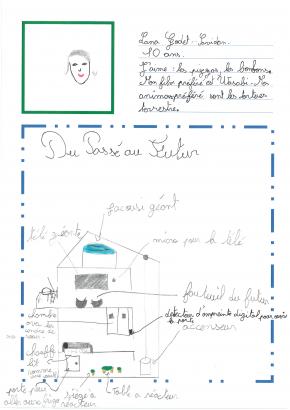 Lana Godet--Loudon.
10 ans.
J'aime: les pizzas, les bonbons.
Mon film préféré est Wasabi. Mes
animaux préféré sont les tortues
terrestre.
Du Passé au Futur
Jacousi géant
télé géante
micro pour la télé
fauteuil du futur
détecteur d'empreinte digital pour ouvrir
la porte
accenseur
chambre
lit
porte pour
siège à
réacteur
table à réacteur